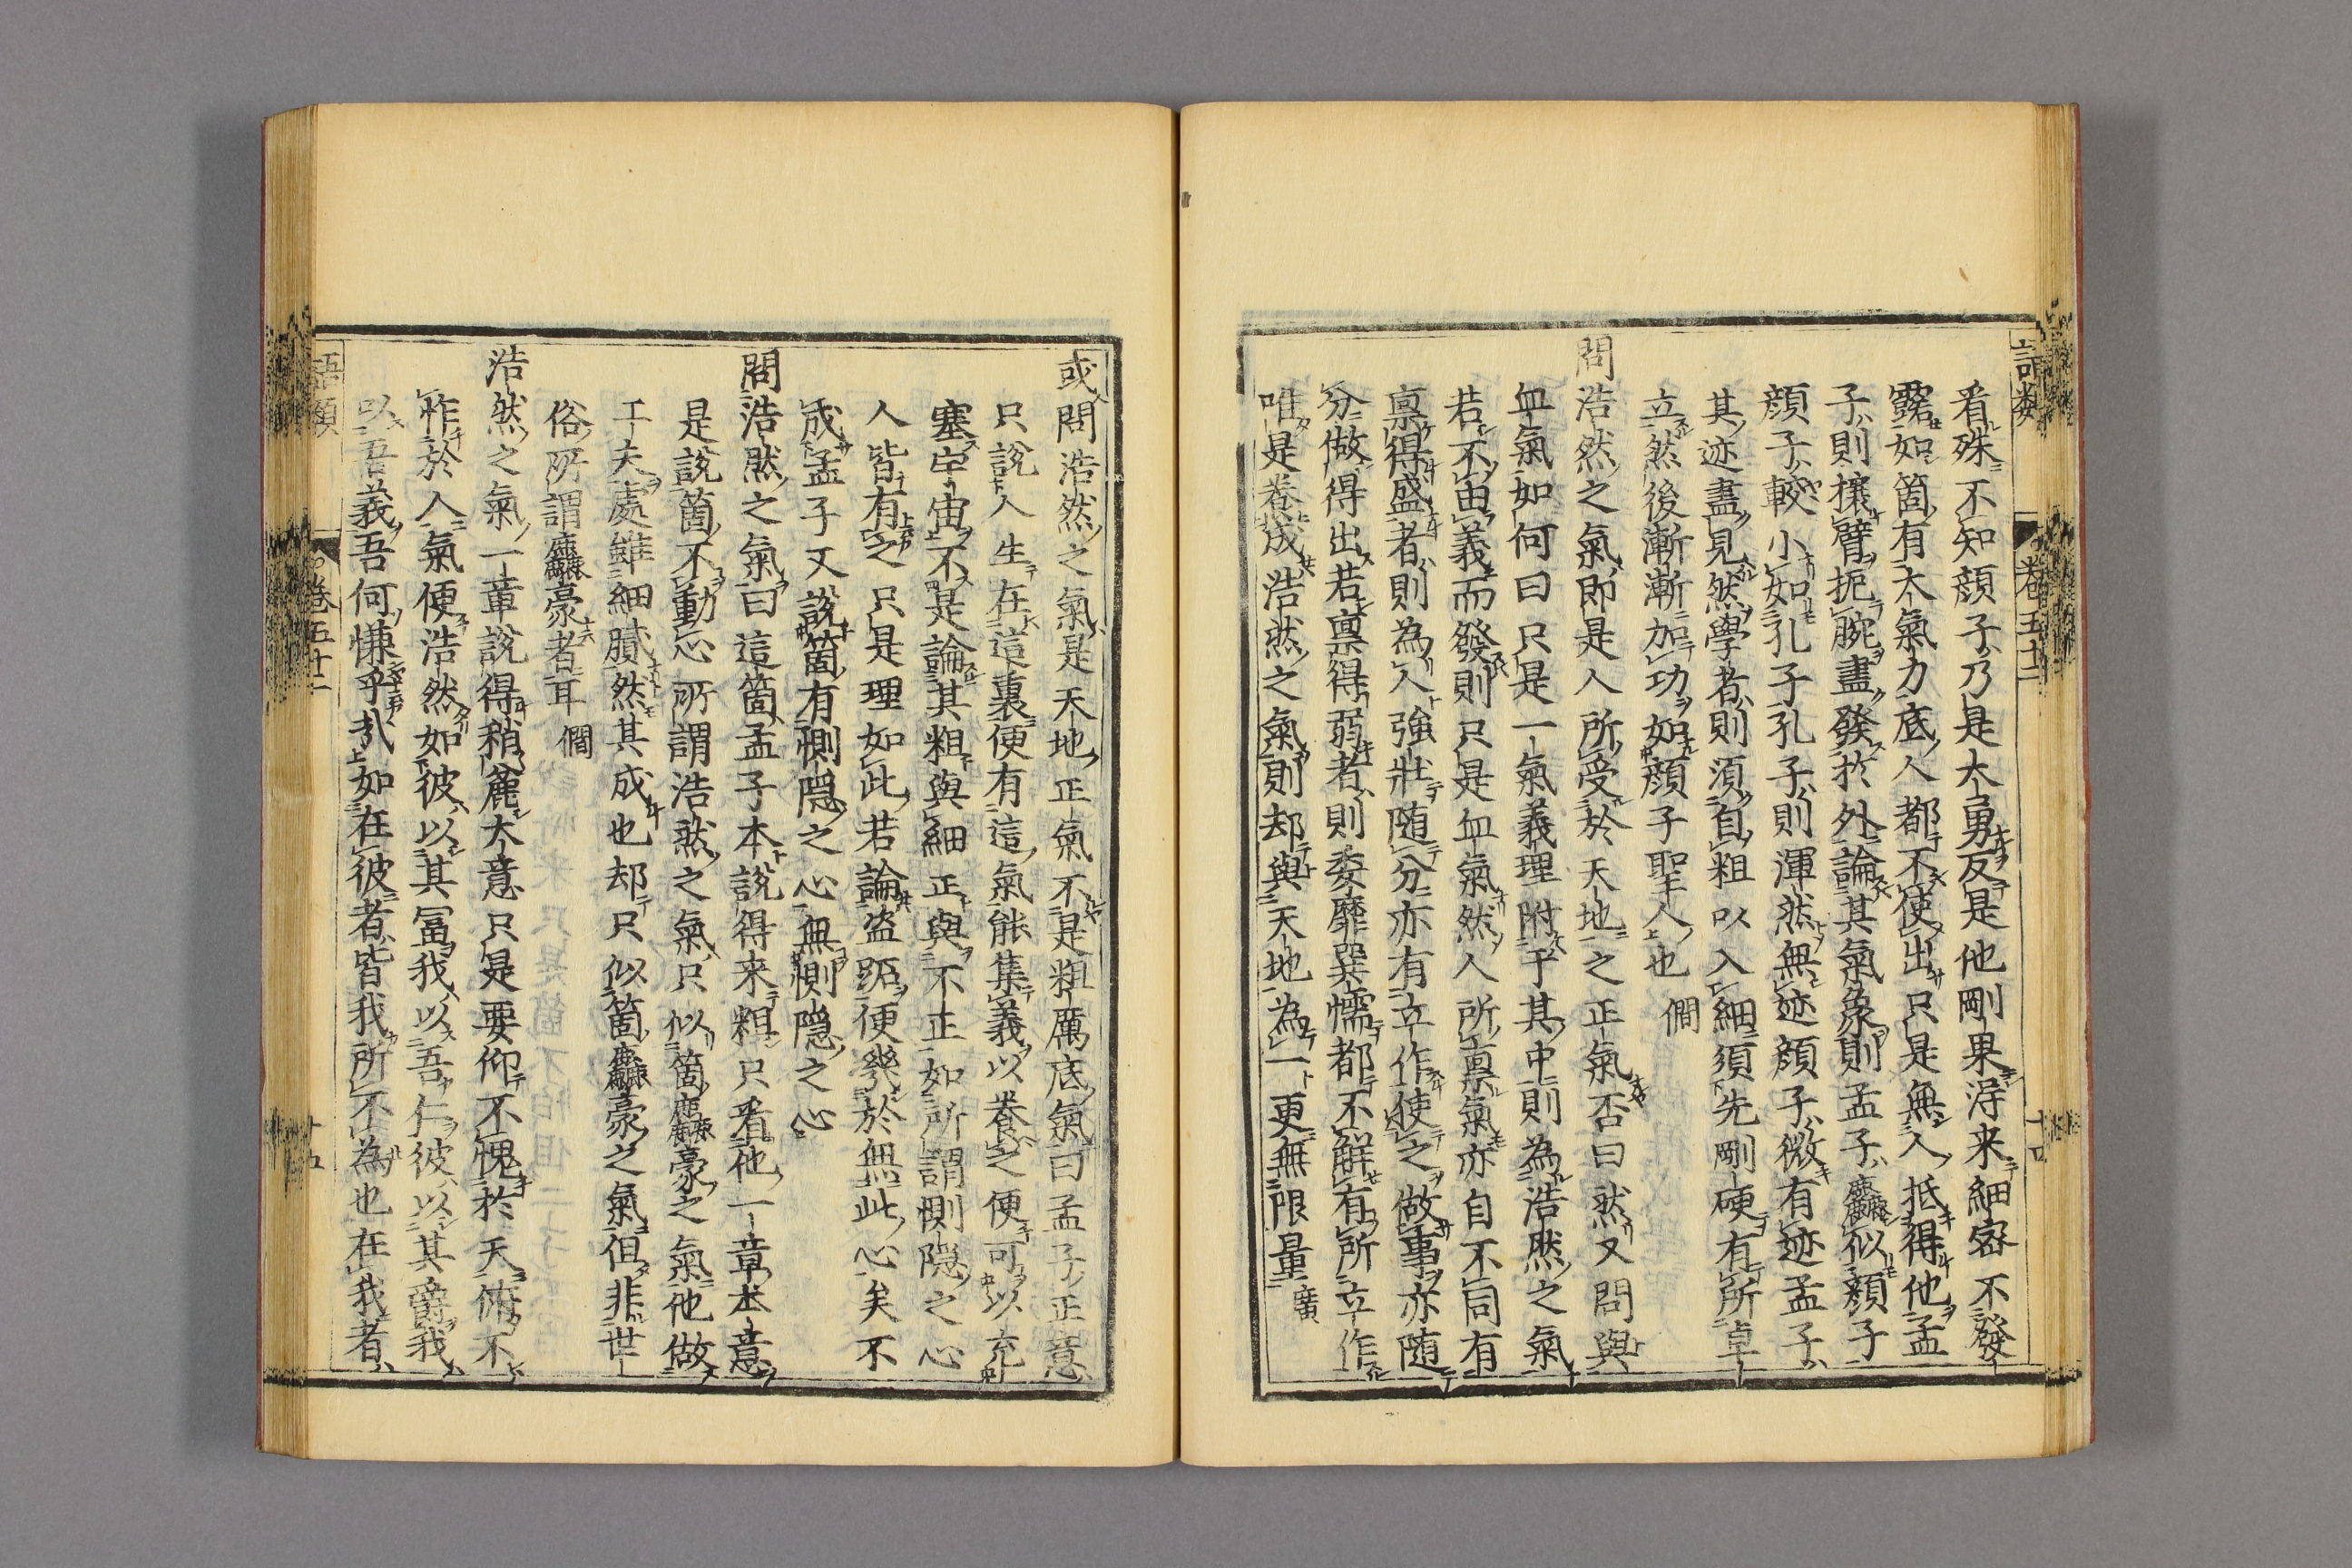 看殊不知顔子乃是大勇反是他剛果得来細密不發
露如箇有大氣力底人都不使出只是無人抵得他孟
子則攘臂扼腕盡發於外論其氣象則孟子麤似顔子
顔子較小如孔子孔子則渾然無迹顔子微有迹孟子
其迹盡見然學者則須自粗以入細須先剛硬有所卓
立然後漸漸加功如顔子聖人也 僩
問浩然之氣即是人所受於天地之正氣否曰然又問與
血氣如何曰只是一氣義理附于其中則為浩然之氣
若不由義而發則只是血氣然人所稟氣亦自不同有
稟得盛者則為人強壯随分亦有立作使之做事亦随
分做得出若稟得弱者則委靡巽懦都不觧有所立作
唯是養成浩然之氣則却與天地為一更無限量 廣
卷五十二
十四
或問浩然之氣是天地正氣不是粗厲底氣曰孟子正意
只說人生在這裏便有這氣能集義以養之便可以充
塞宇宙不是論其粗與細正與不正如所謂惻隠之心
人皆有之只是理如此若論盗跖便幾於無此心矣不
成孟子又說箇有惻隠之心無惻隠之心
問浩然之氣曰這箇孟子本說得来粗只看他一章本意
是說箇不動心所謂浩然之氣只似箇麤豪之氣他做
工夫處雖細膩然其成也却只似箇麤豪之氣但非世
俗所謂麤豪者耳 僩
浩然之氣一章說得稍麄大意只是要仰不愧於天俯不
怍於人氣便浩然如彼以其冨我以吾仁彼以其爵我
以吾義吾何慊乎哉如在彼者皆我所不為也在我者
語類
卷五十二
十五